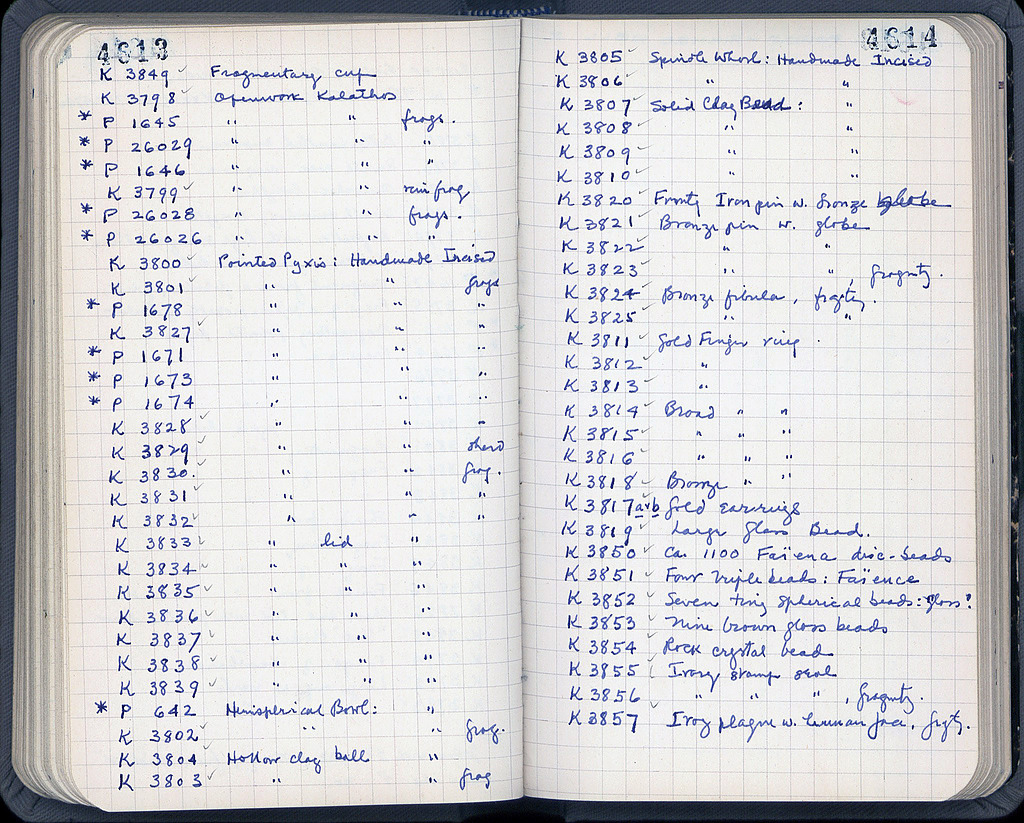 4613
K 3849 ✓ Fragmentary cup
K 3798 ✓ Openwork Kalathos
* P 1645 " " frags.
* P 26029 " " "
* P 1646 " " "
K 3799 ✓ " " rim frag
* P 26028 " " frags.
* P 26026 " " "
K 3800 ✓ Pointed Pyxis: Handmade Incised
K 3801 ✓ " " frags
* P 1678 " " "
K 3827 ✓ " " "
* P 1671 " " "
* P 1673 " " "
* P 1674 " " "
K 3828 ✓ " " "
K 3829 ✓ " " sherd
K 3830. ✓ " " frag.
K 3831 ✓ " " "
K 3832 ✓ " " "
K 3833 ✓ " lid "
K 3834 ✓ " " "
K 3835 ✓ " " "
K 3836 ✓ " " "
K 3837 ✓ " " "
K 3838 ✓ " " "
K 3839 ✓ " " "
* P 642 Hemispherical Bowl: "
K 3802 ✓ " " frag.
K 3804 ✓ Hollow clay ball "
K 3803 ✓ " " frag
4614
K 3805 ✓ Spindle Whorl: Handmade Incised
K 3806 ✓ " "
K 3807 ✓ Solid Clay Bead: "
K 3808 ✓ " "
K 3809 ✓ " "
K 3810 ✓ " "
K 3820 ✓ Iron pin w. bronze globe
K 3821 ✓ Bronze pin w. globe
K 3822 ✓ " "
K 3823 ✓ " ", fragmty.
K 3824 ✓ Bronze fibula, frgty.
K 3825 ✓ " "
K 3811 ✓ Gold Finger ring.
K 3812 ✓ "
K 3813 ✓ "
K 3814 ✓ Broad " "
K 3815 ✓ " " "
K 3816 ✓ " " "
K 3818 ✓ Bronze " "
K 3817 a+b Gold earrings
K 3819 ✓ Large Glass Bead.
K 3850 ✓ Ca. 1100 Faïence disc-beads
K 3851 ✓ Four triple beads: Faïence
K 3852 ✓ Seven tiny spherical beads: glass?
K 3853 ✓ Nine brown glass beads
K 3854 ✓ Rock crystal bead
K 3855 ✓ Ivory stamp seal
K 3856 ✓ " " ", fragmty.
K 3857 ✓ Ivory plaque w. human face, frgty.